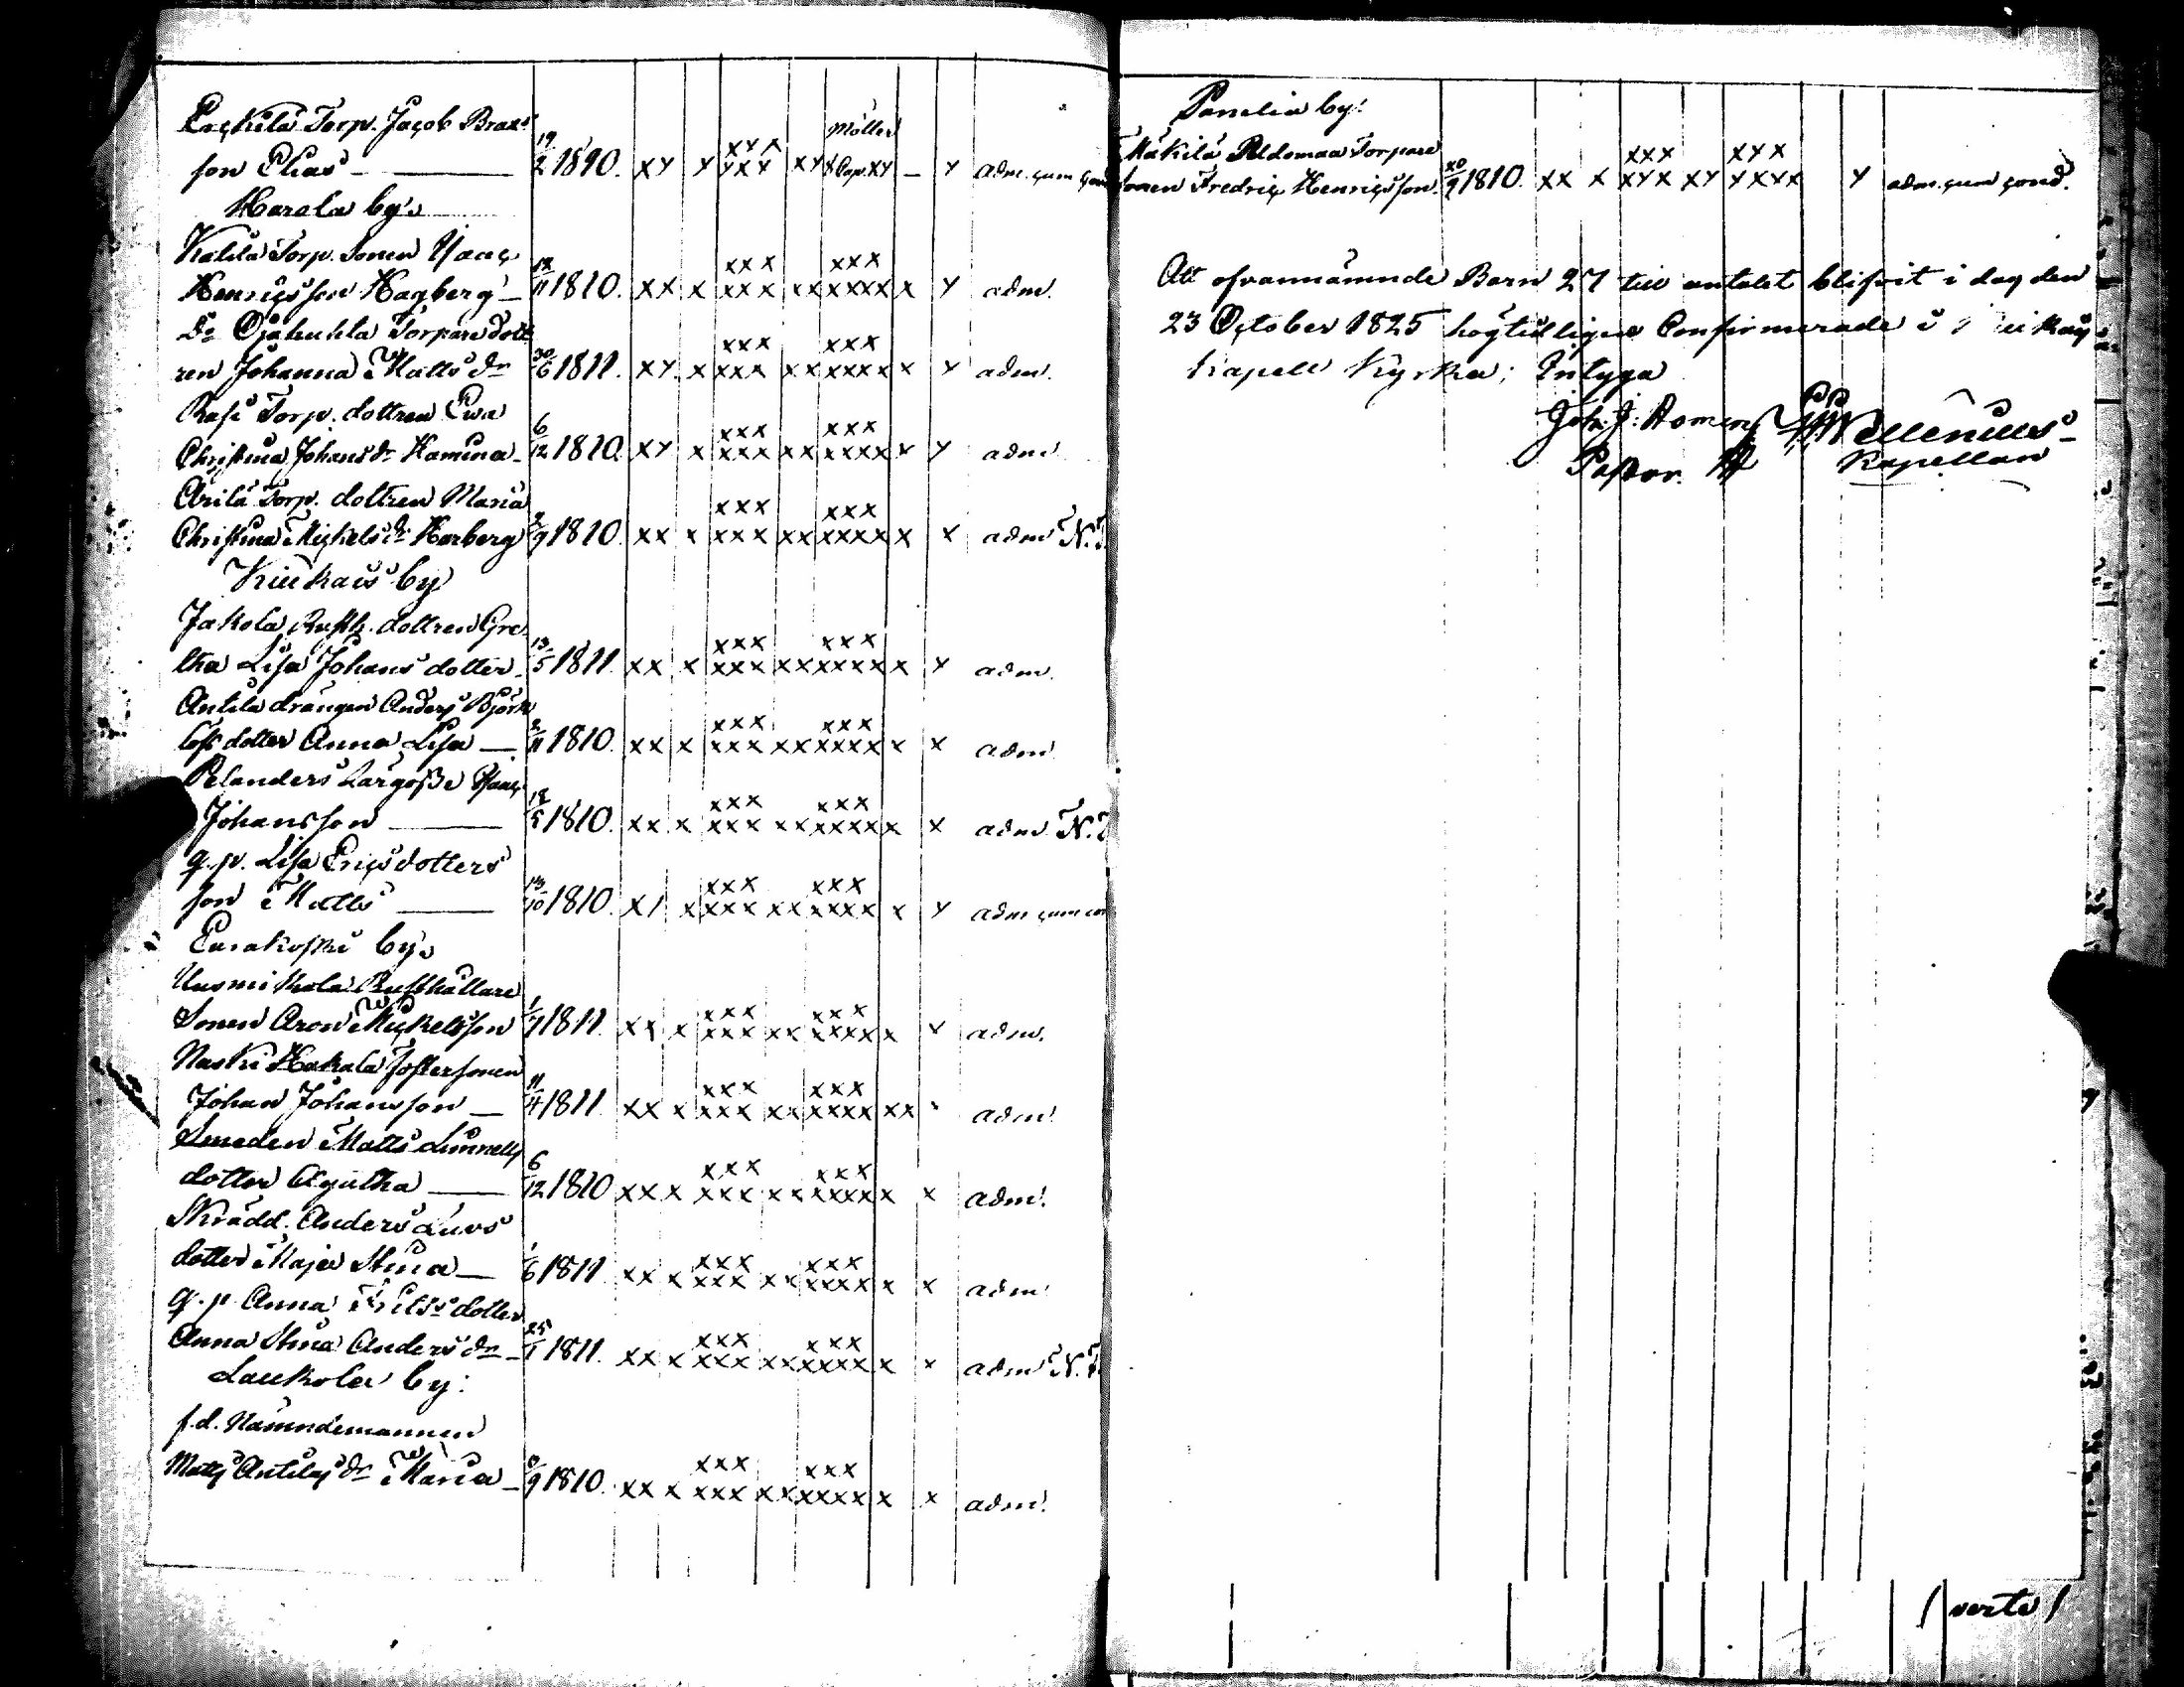 Torp. Jacob Brax
Möller
son Elias — 19/2 1810. xx x xxx xxx xx x Cap. xx — x adm. cum cond
Harola by.
Kallila Torp. Sonen Isaac
Henricsson Hagberg — 11 1810. xx x xxx xxx xx xxx xxxx x x adm.
Do Ojahuhta Torpare dott
ren Johanna Matts dr 30/6 1811. xx x xxx xxx xx xxx xxxx x x adm.
Rasi Torp. dottren Ewa
Christina Johans dr Hamina — 6/12 1810. xx x xxx xxx xx xxx xxxx x x adm
Arila Torp. dottren Maria
Christina Mickels dr Harberg 2/9 1810. xx x xxx xxx xx xxx xxxx x x adm N.
Kiukais by
Jakola Rusth. dottren Gre
tha Lisa Johans dotter — 13/5 1811. xx x xxx xxx xx xxx xxxx x x adm.
Antila drängen Anders Björk
lofs dotter Anna Lisa — 2/11 1810. xx x xxx xxx xx xxx xxxx x x adm
Pelanders Lärgosse Isaac
Johansson — 18/5 1810. xx x xxx xxx xx xxx xxxx x x adm N.
q. p. Lisa Ericsdotters
son Matts — 13/10 1810. x/ x xxx xxx xx xxx xxxx x x adm cum con
Eurakoski by.
Uusmikola Rusthållare
Sonen Aron Mickelsson 1/7 1811. xx x xxx xxx xx xxx xxxx x x adm.
Naski Hakala Fostersonen
Johan Johansson — 11/4 1811. xx x xxx xxx xx xxx xxxx xx adm
Smeden Matts
dotter Agatha — 6/12 1810 xx x xxx xxx xx xxx xxxx x x adm.
Skrädd. Anders
dotter Maja Stina — 1/6 1811 xx x xxx xxx xx xxx xxxx x x adm
q. p. Anna dotter
Anna Stina Anders dr — 25/1 1811. xx x xxx xxx xx xxx xxxx x x adm N.
Laukola by:
f. d. Nämndemannen
Matts Antilas dr Maria — 9 1810. xx x xxx xxx xx xxx xxxx x x adm.
Panelia by:
Mäkilä Torpare
sonen Fredric Henricsson. 20/9 1810. xx x xxx xxx xx xxx xxxx x adm. cum cond.
Att ofvannämnde Barn 27 till antalet blifvit i dag den
23 October 1825 högtidligen Confirmerade i
Kapell Kyrka; Intyga
Joh. J. Homen
Pastor.
Kapellan
/ verte /